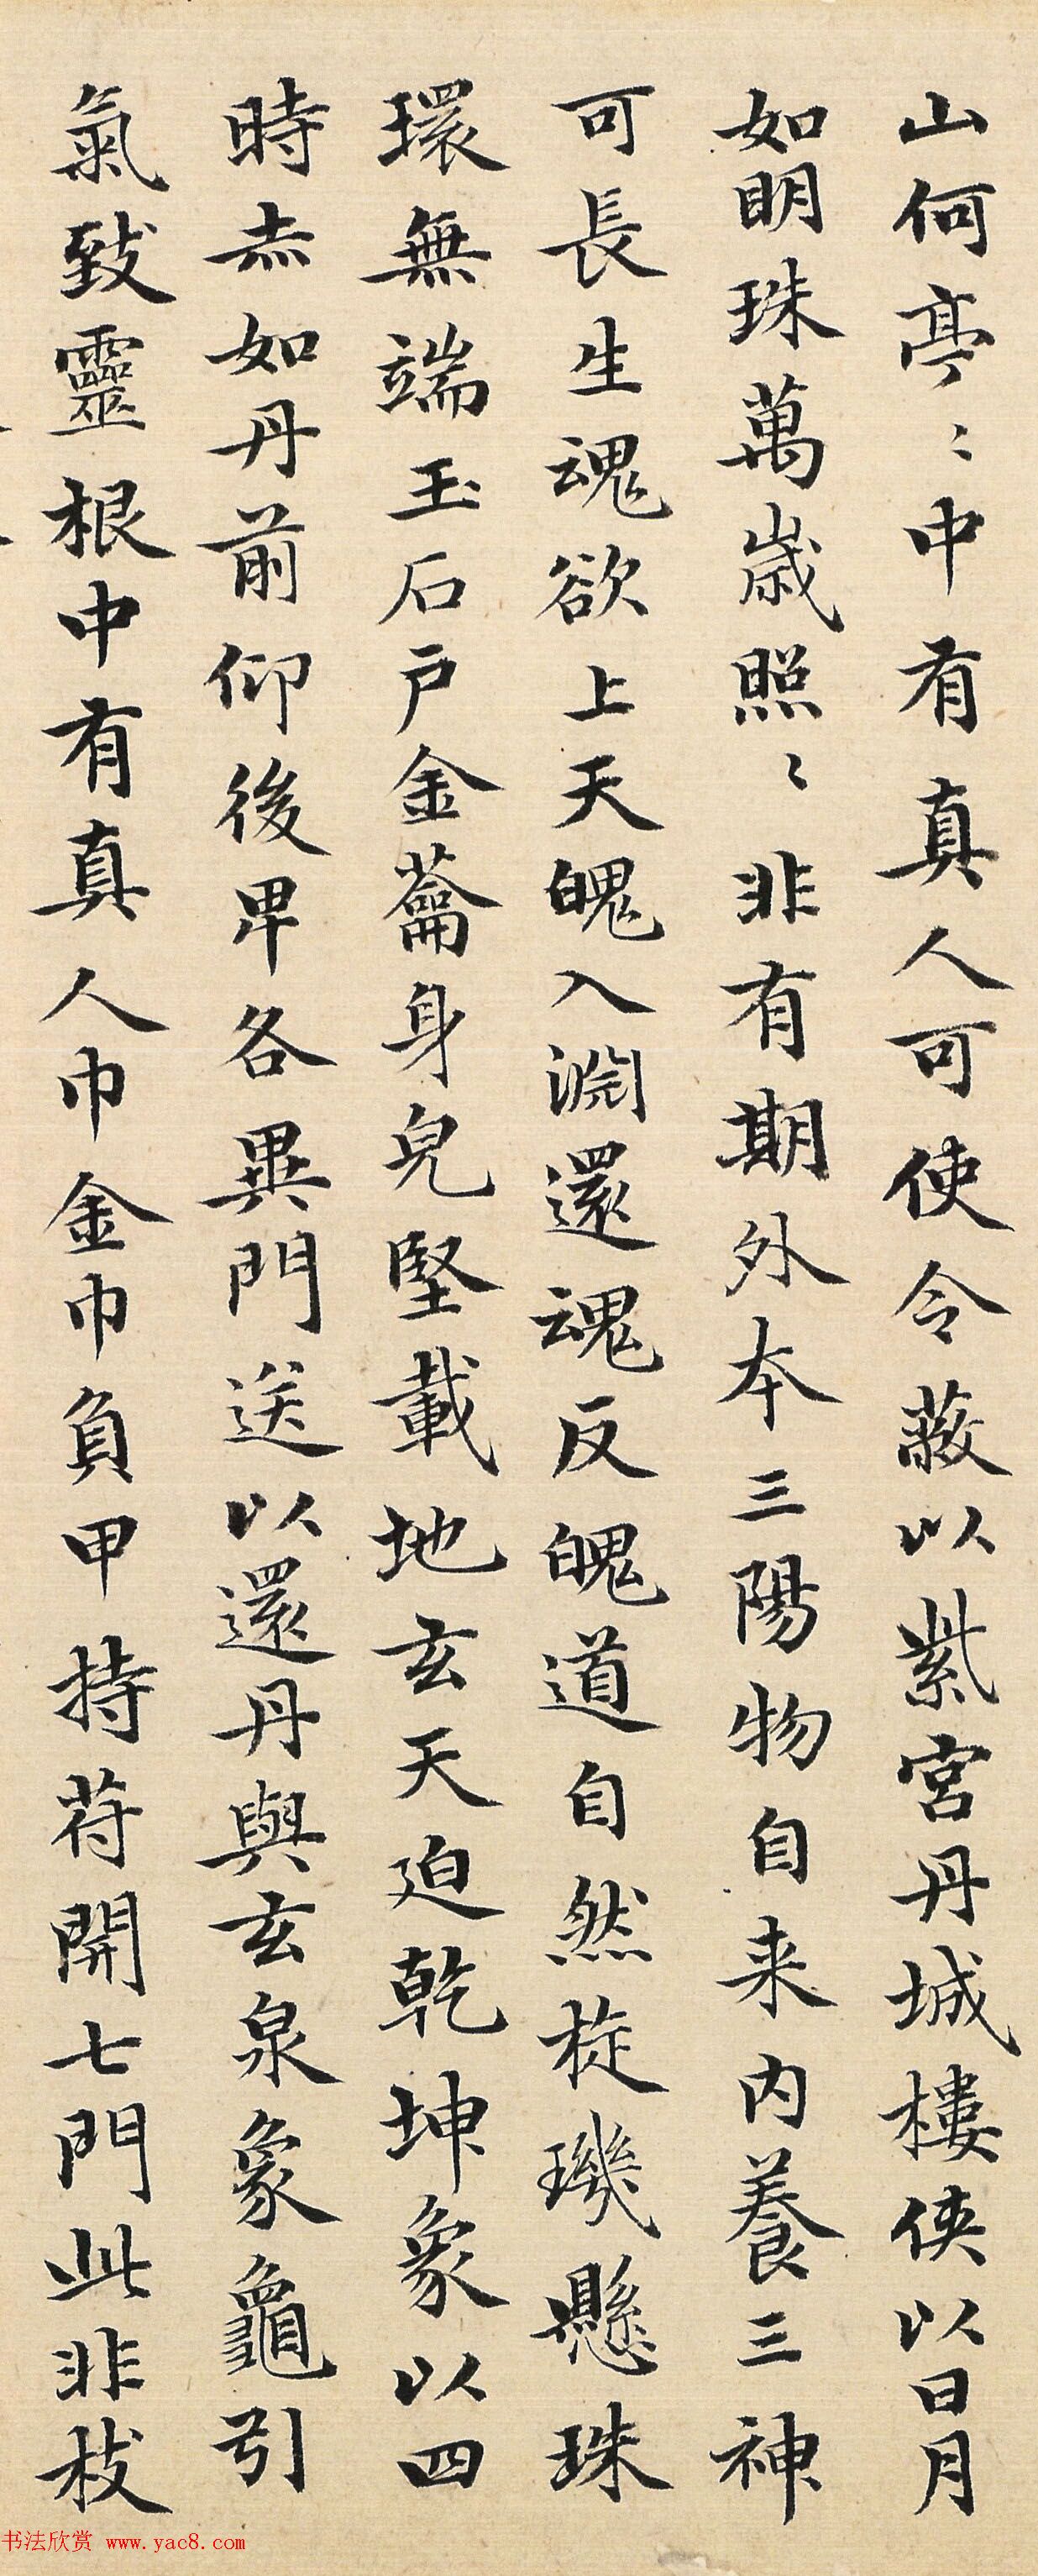 山何亭〻中有真人可使令蔽以紫宮丹城樓侠以日月
如明珠萬歳照〻非有期外本三陽物自来内養三神
可長生魂欲上天魄入淵還魂反魄道自然旋璣懸珠
環無端玉石戶金籥身皃堅載地玄天迫乾坤象以四
時赤如丹前仰後卑各異門送以還丹與玄泉象龜引
氣致靈根中有真人巾金巾負甲持苻開七門此非枝
书法欣赏 www.yac8.com